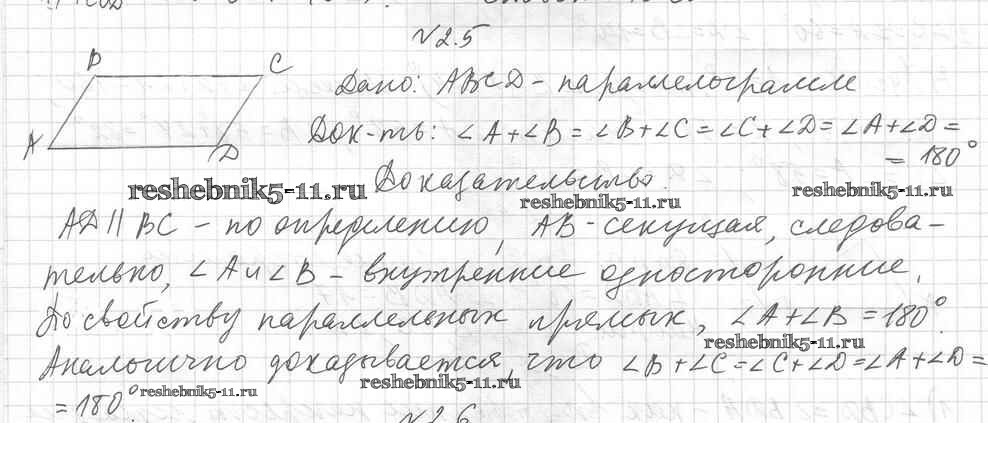 N 2.5
B C
Дано: ABCD - параллелограмм
A D
Док-ть: ∠A+∠B = ∠B+∠C = ∠C+∠D = ∠A+∠D =
= 180°
Доказательство.
reshebnik5-11.ru
reshebnik5-11.ru
reshebnik5-11.ru
AD || BC - по определению, AB - секущая, следова-
тельно, ∠A и ∠B - внутренние односторонние.
По свойству параллельных прямых, ∠A+∠B = 180°.
reshebnik5-11.ru
Аналогично доказывается, что ∠B+∠C=∠C+∠D=∠A+∠D=
reshebnik5-11.ru
= 180°
reshebnik5-11.ru
N 2.6